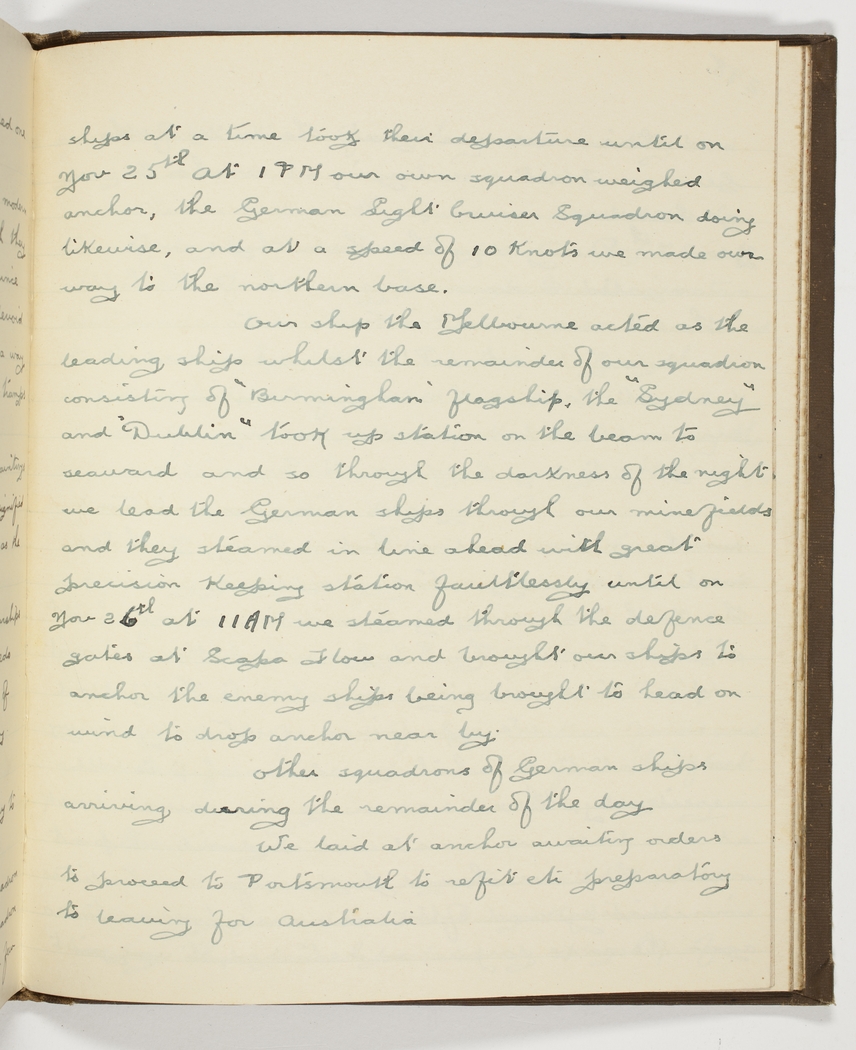 ships at a time took their departure until on
Nov 25th at 1 PM our own squadron weighed
anchor, the German Light Cruiser Squadron doing
likewise, and at a speed of 10 Knots we made our
way to the northern base.
Our ship the Melbourne acted as the
leading ship whilst the remainder of our squadron
consisting of "Birmingham" flagship, the "Sydney"
and "Dublin" took up station on the beam to
seaward and so through the darkness of the night
we lead the German ships through our minefields
and they steamed in line ahead with great
precision Keeping station faultlessly until on
Nov 26th at 11AM we steamed through the defence
gates at Scapa Flow and brought our ships to
anchor the enemy ships being brought to head on
wind to drop anchor near by.
Other squadrons of German ships
arriving during the remainder of the day
We laid at anchor awaiting orders
to proceed to Portsmouth to refit etc preparatory
to leaving for Australia